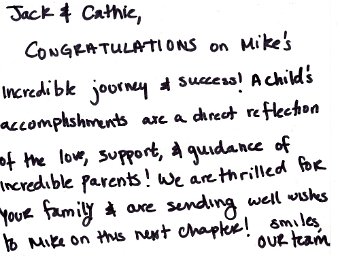 Jack & Cathie,
CONGRATULATIONS on Mike's
Incredible journey & success! A child's
accomplishments are a direct reflection
of the love, support, & guidance of
incredible parents! We are thrilled for
your family & are sending well wishes
to Mike on this next chapter!
smiles,
OUR team